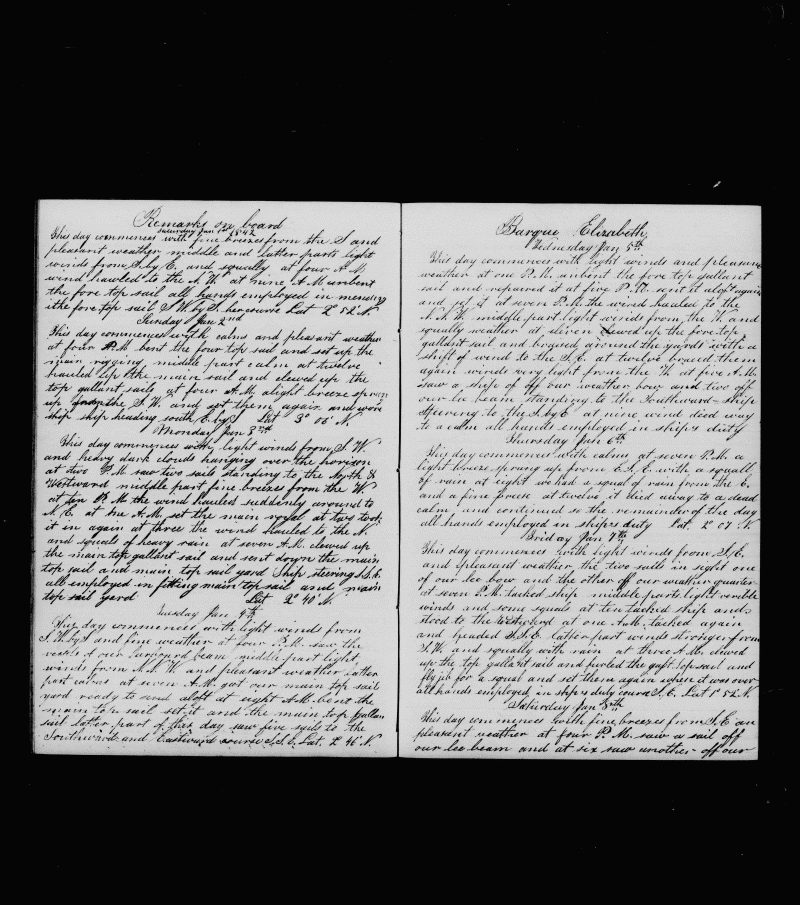 Remarks on board
Saturday Jan 1st 1842
This day commences with fine breezes from the S and
pleasant weather middle and latter parts light
winds from S. by E. and squally at four A.M.
wind hauled to the N.W. at nine A.M. unbent
the fore top sail all hands employed in mending
the fore top sail S.W. by S. her course Lat 2° 52 N
Sunday Jan 2nd
This day commences with calms and pleasant weather
at four P.M. bent the four top sail and set up the
main rigging middle part calm at twelve
hauled up the main sail and clewed up the
top gallant sails at four A.M. alight breeze sprun
up from the S.W. and set them again and wore
ship ship heading south E. by S Lat 3° 06' N.
Monday Jan 3rd
This day commences with light winds from S.W.
and heavy dark clouds hanging over the horison
at two P.M. saw two sails standing to the North &
Westward middle part fine breezes from the W.
at ten P.M. the wind hauled suddenly around to
N.E. at one A.M. set the main royal at two took
it in again at three the wind hauled to the N.
and squals of heavy rain at seven A.M. clewed up
the main top gallant sail and sent down the main
top sail and main top sail yard Ship steering S.S.E.
all employed in fitting main top sail and main
top sail yard Lat 2° 40' N.
Tuesday Jan 4th
This day commences with light winds from
S.W. by S and fine weather at four P.M. saw the
vessels of our larboard beam middle part light
winds from N.N.W. and pleasant weather latter
part calms at seven A.M. got our main top sail
yard ready to send aloft at eight A.M. bent the
main top sail set it and the main top gallan
sail latter part of this day saw five sails to the
Southward and Eastward course S.S.E. Lat. 2 46' N.
Barque Elizabeth,
Wednesday Jan 5th
This day commences with light winds and pleasure
weather at one P.M. unbent the fore top gallant
sail and repaired it at five P.M. sent it aloft again
and set it at seven P.M. the wind hauled to the
N.N.W. middle part light winds from the W. and
squally weather at eleven clewed up the fore top
gallant sail and braced around the yards with a
shift of wend to the S.E. at twelve braced them
again winds very light from the W. at five A.M.
saw a ship of off our weather bow and two off
our lee beam standing to the Southward ship
steering to the S. by E at nine wind died way
to a calm all hands employed in ship's duty
Thursday Jan 6th
This day commences with calms at seven P.M. a
light breeze sprung up from E.S.E. with a squall
of rain at eight we had a squal of rain from the E.
and a fine breeze at twelve it died away to a dead
calm and continued so the remainder of the day
all hands employed in ship's duty Lat. 2 07 N
Friday Jan 7th
This day commences with light winds from S.E.
and pleasant weather, the two sails in sight one
of our lee bow and the other off our weather quarter
at seven P.M. tacked ship middle parts light varible
winds and some squals at ten tacked ship and
stood to the Westward at one A.M. tacked again
and headed S.S.E. latter part winds stronger from
S.W. and squally with rain at three A.M. clewed
up the top gallant sail and furled the gaft topsail and
flyjib for a squal and set them again when it was over
all hands employed in ship's duty course S.E. Lat 1° 52' N.
Saturday Jan 8th
This day commences with fine breezes from S.E an
pleasant weather at four P.M. saw a sail off
our lee beam and at six saw another off our